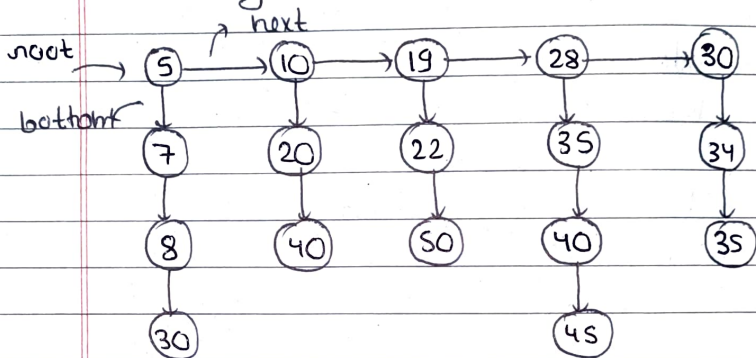 next
root
5 10 19 28 30
bottom
7 20 22 35 34
8 40 50 40 35
30 45